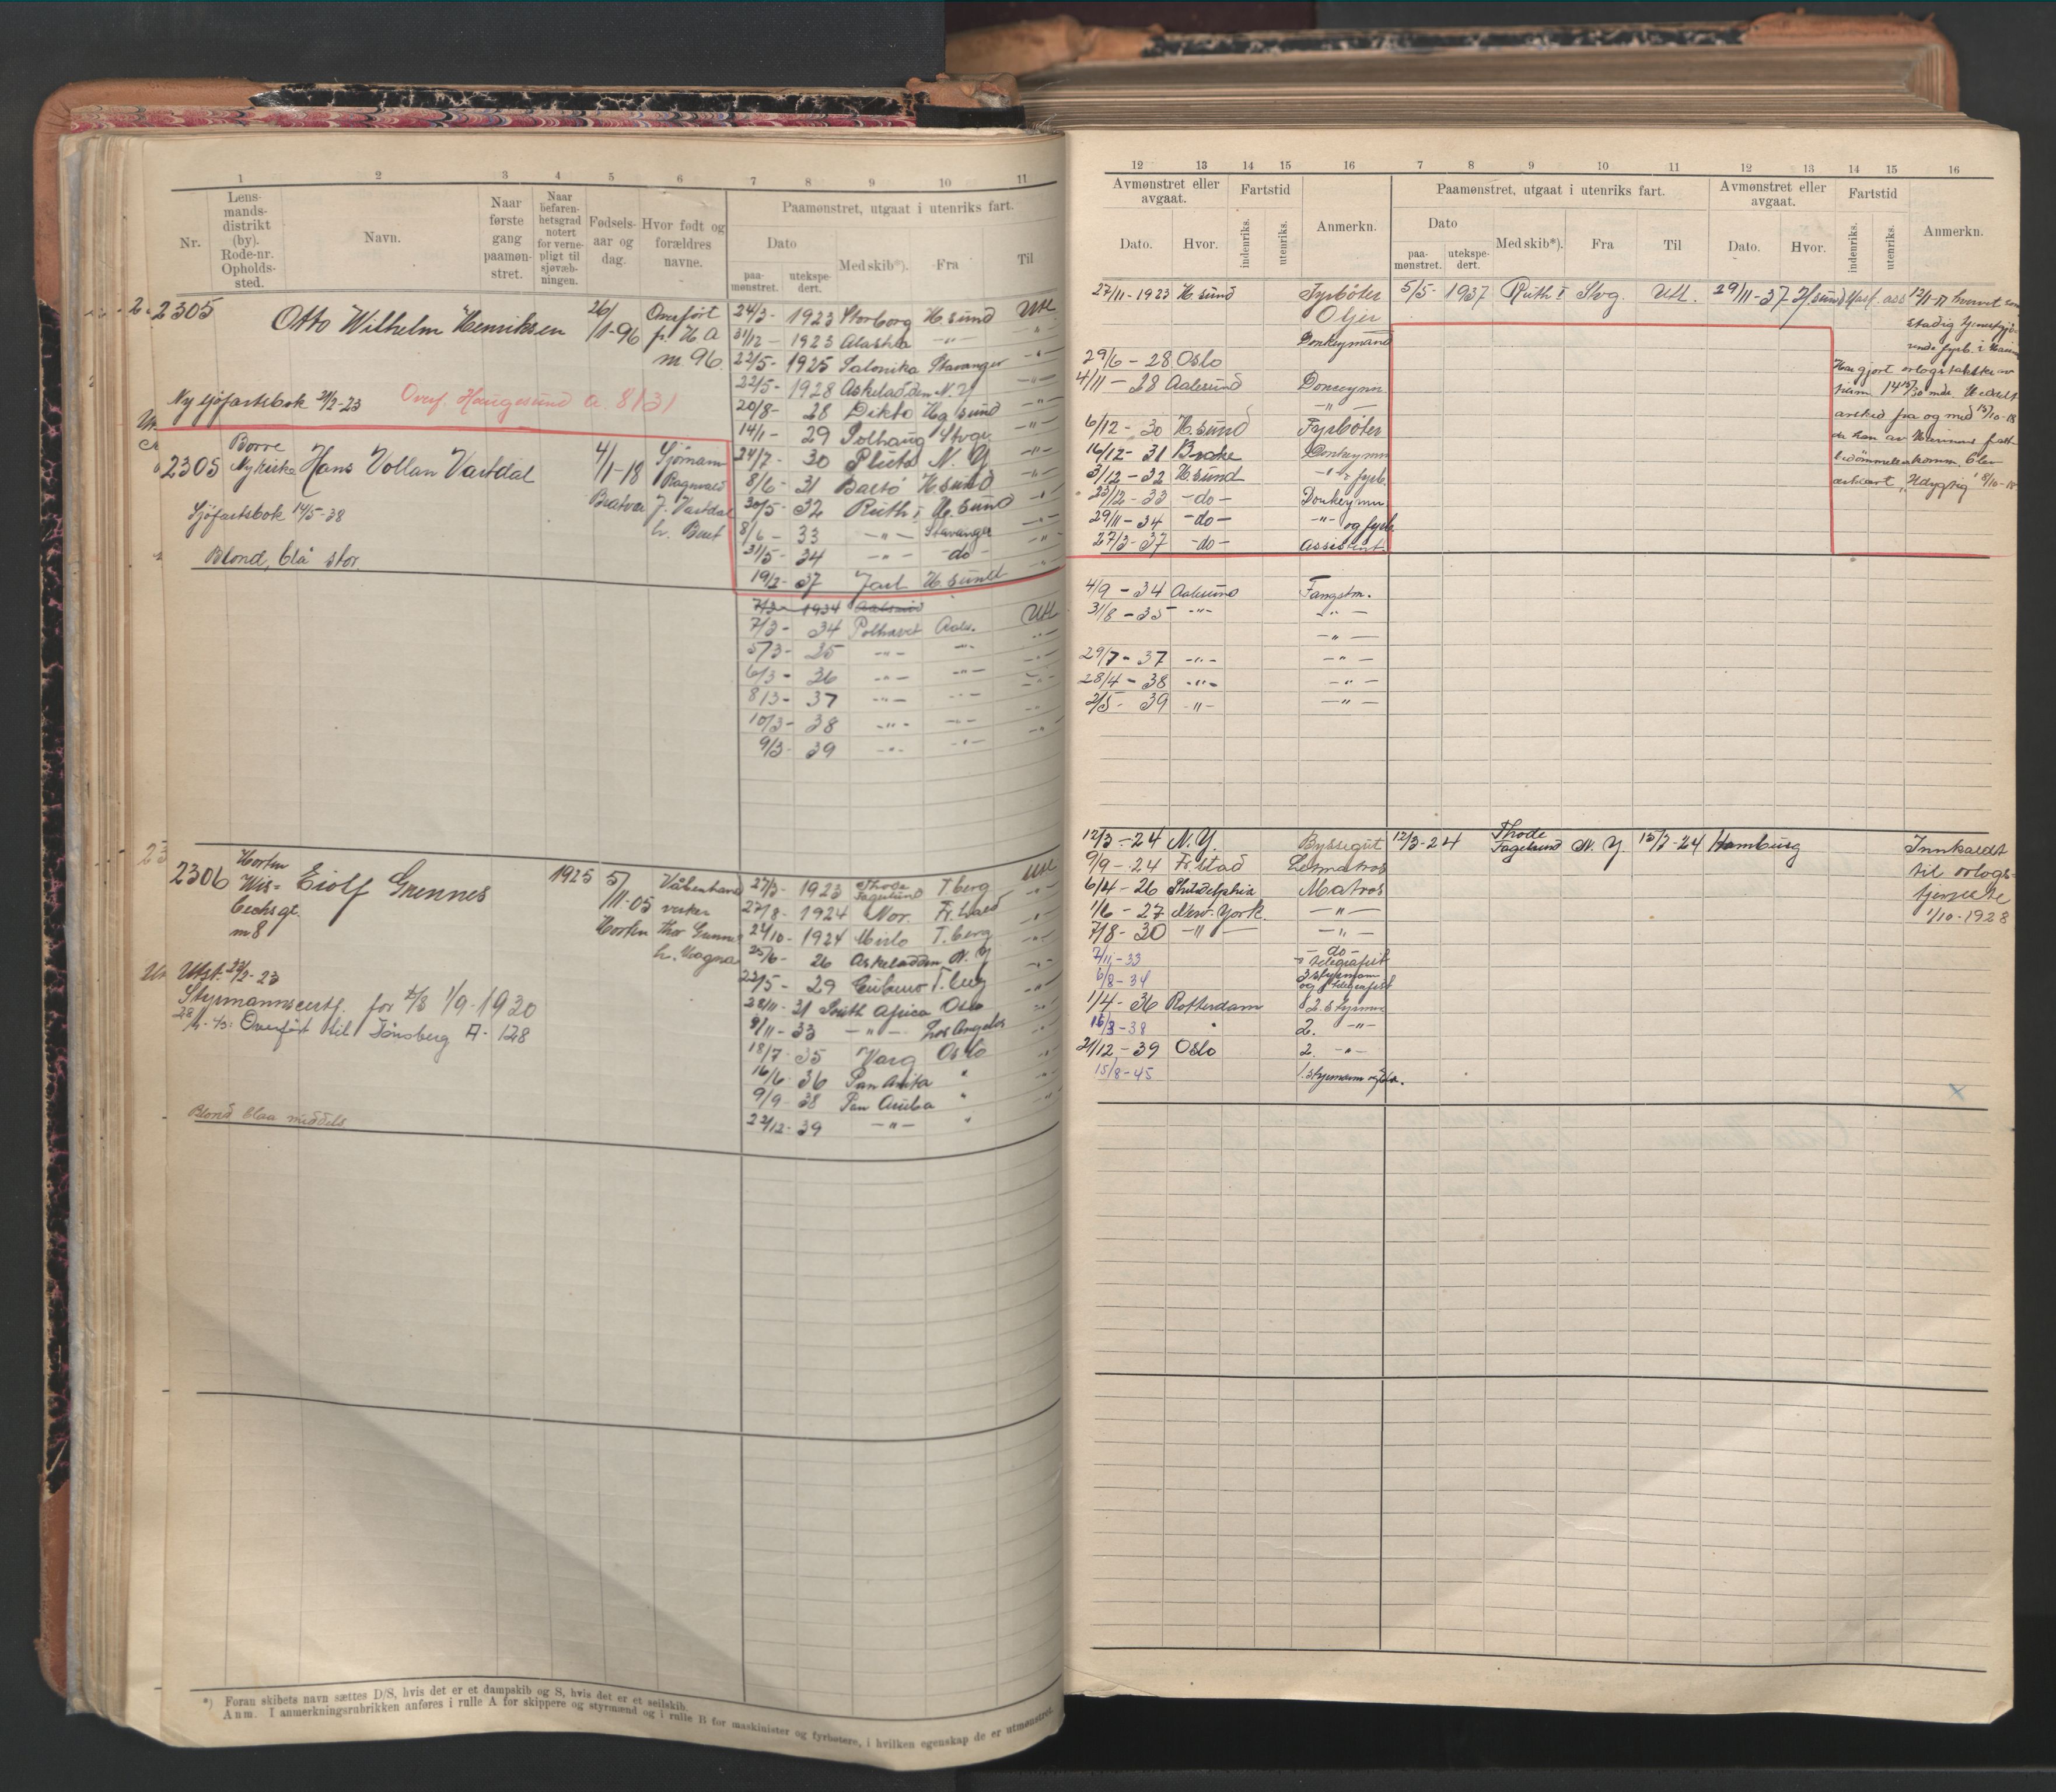 1 2 3 4 5 6 7 8 9 10 11
Nr.
Lens-
mands-
distrikt
(by).
Rode-nr.
Opholds-
sted.
Navn.
Naar
første
gang
paamøn-
stret.
Naar
befaren-
hetsgrad
notert
for verne-
pligt til
sjøvæb-
ningen.
Fødsels-
aar og
dag.
Hvor født og
forældres
navne.
Paamønstret, utgaat i utenriks fart.
Dato
paa-
mønstret.
utekspe-
dert.
Med skib*).
Fra
Til
2305 Otto Wilhelm Henriksen 26/1-96 Overført fr. H A m 96.
Ny sjøfartsbok 21/2-23 Overf. Haugesund a. 8131
24/3- 1923 Storborg H.sund Utl
31/12 - 1923 Alaska -"- -"-
22/5- 1925 Salonika Stavanger -"-
22/5- 1928 Askeladden N.Y -"-
20/8- 28 Dikto Hg sund -"-
14/1- 29 Solhaug Stvgr. -"-
24/7- 30 Pluto N.Y. -"-
8/6- 31 Bartö H.sund -"-
30/5- 32 Ruth I H.sund -"-
8/6- 33 -"- Stavanger -"-
31/5- 34 -"- -do- -"-
19/2- 37 Jarl H.sund -"-
2305 Borre Nykirke Hans Vollan Vartdal 4/1-18 Sjömann Ragnvald J. Vartdal
Sjøfartsbok 14/5-38
Blond, blå stor.
7/3- 1934 Aalesund
7/3- 34 Polhavet Aales. Utl
5/3- 35 -"- -"- -"-
6/3- 36 -"- -"- -"-
8/3- 37 -"- -"- -"-
10/3- 38 -"- -"- -"-
9/3- 39 -"- -"- -"-
2306 Horten Wis= bechs gt. m 8 Eiolf Grennes 1925 5/11-05 Horten
Utst. 23/2-23
Styrmannscertf. for D/S 1/9-1930
Overført til Tönsberg A- 128
Blond blaa middels
27/3- 1923 Thode Fagelund T.berg Utl
27/8- 1924 Nor. Fr.stad -"-
22/10- 1924 Mirlo T.berg -"-
25/6- 26 Askeladden N.Y -"-
22/5- 29 T.berg -"-
28/11- 31 South Africa Oslo
9/11- 33 -"- Los Angeles
18/7- 35 Varg Oslo
16/6- 36 San Anita "
9/9- 38 Pan Aruba "
22/12- 39 -"- "
*) Foran skibets navn sættes D/S, hvis det er et dampskib og S, hvis det er et seilskib.
Anm. I anmerkningsrubrikken anføres i rulle A for skippere og styrmænd og i rulle B for maskinister og fyrbøtere, i hvilken egenskap de er utmønstret.
12 13 14 15 16 7 8 9 10 11 12 13 14 15 16
Avmønstret eller
avgaat.
Dato. Hvor.
Fartstid
indenriks. utenriks.
Anmerkn.
Paamønstret, utgaat i utenriks fart.
Dato
paa-
mønstret.
utekspe-
dert.
Med skib*).
Fra
Til
Avmønstret eller
avgaat.
Dato. Hvor.
Fartstid
indenriks. utenriks.
Anmerkn.
27/11-1923 H.sund Fyrböter 5/5- 1937 Ruth I Stvg. Utl. 29/11-37 H.sund
Oljer
Donkeymand
29/6-28 Oslo
4/11-28 Aalesund Donkeymn
-"-
6/12-30 H.sund Fyrböter
16/12-31 Brake Donkeymn
3/12-32 H.sund -"- fyrb.
23/12-33 -do- Donkeymn.
29/11-34 -do- -"- og fyrb
27/3-37 -do- assistent
stadig tjenestgjö-
rende fyrb. i
Har gjort orlogstakster
avskjed fra og med 15/10-18
da han av Marinens
bedömmelseskomm. blev
erklært "Udygtig" 8/10-18
4/9-34 Aalesund Fangstm.
31/8-35 -"- -"-
-"-
29/7-37 -"- -"-
28/4-38 -"- -"-
2/5-39 -"- -"-
12/3-24 N.Y. Byssegut 12/3-24 Thode Fagelund N.Y. 15/3-24 Hamburg
9/9-24 Fr.stad Letmatros
6/4-26 Philidelphia Matros
1/6-27 New-York. -"-
7/8-30 -"- -"-
7/11-33 -do- telegrafist
6/8-34 3 styrmann og telegrafist
1/4-36 Rotterdam 2. styrmn
16/3-38 " 2. -"-
21/12-39 Oslo 2. -"-
15/8-45 1. styrmann
Innkaldt
til orlogs-
tjeneste
1/10-1928